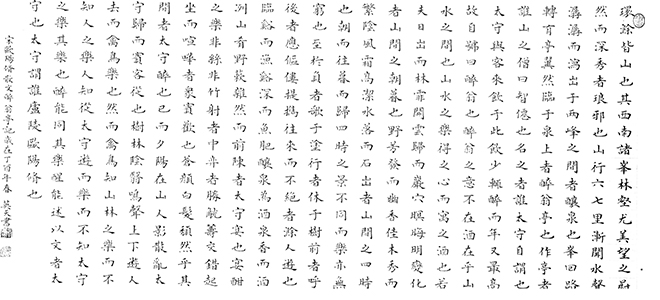 環滁皆山也其西南諸峯林壑尤美望之蔚
然而深秀者琅邪也山行六七里漸聞水聲
潺潺而瀉出于兩峰之間者釀泉也峯回路
轉有亭翼然臨于泉上者醉翁亭也作亭者
誰山之僧曰智僊也名之者誰太守自謂也
太守與客來飲于此飲少輒醉而年又最高
故自號曰醉翁也醉翁之意不在酒在乎山
水之間也山水之樂得之心而寓之酒也若
夫日出而林霏開雲歸而巖穴暝晦明變化
者山間之朝暮也野芳發而幽香佳木秀而
繁陰風霜高潔水落而石出者山間之四時
也朝而往暮而歸四時之景不同而樂亦無
窮也至於負者歌于塗行者休于樹前者呼
後者應傴僂提攜往來而不絕者滁人遊也
臨谿而漁谿深而魚肥釀泉爲酒泉香而酒
洌山肴野蔌雜然而前陳者太守宴也宴酣
之樂非絲非竹射者中弈者勝觥籌交錯起
坐而喧嘩者衆賓歡也蒼顔白髮頹然乎其
間者太守醉也已而夕陽在山人影散亂太
守歸而賓客從也樹林陰翳鳴聲上下遊人
去而禽鳥樂也然而禽鳥知山林之樂而不
知人之樂人知從太守遊而樂而不知太守
之樂其樂也醉能同其樂醒能述以文者太
守也太守謂誰廬陵歐陽脩也
宋歐陽脩散文醉翁亭記歲在丁酉年春 天書